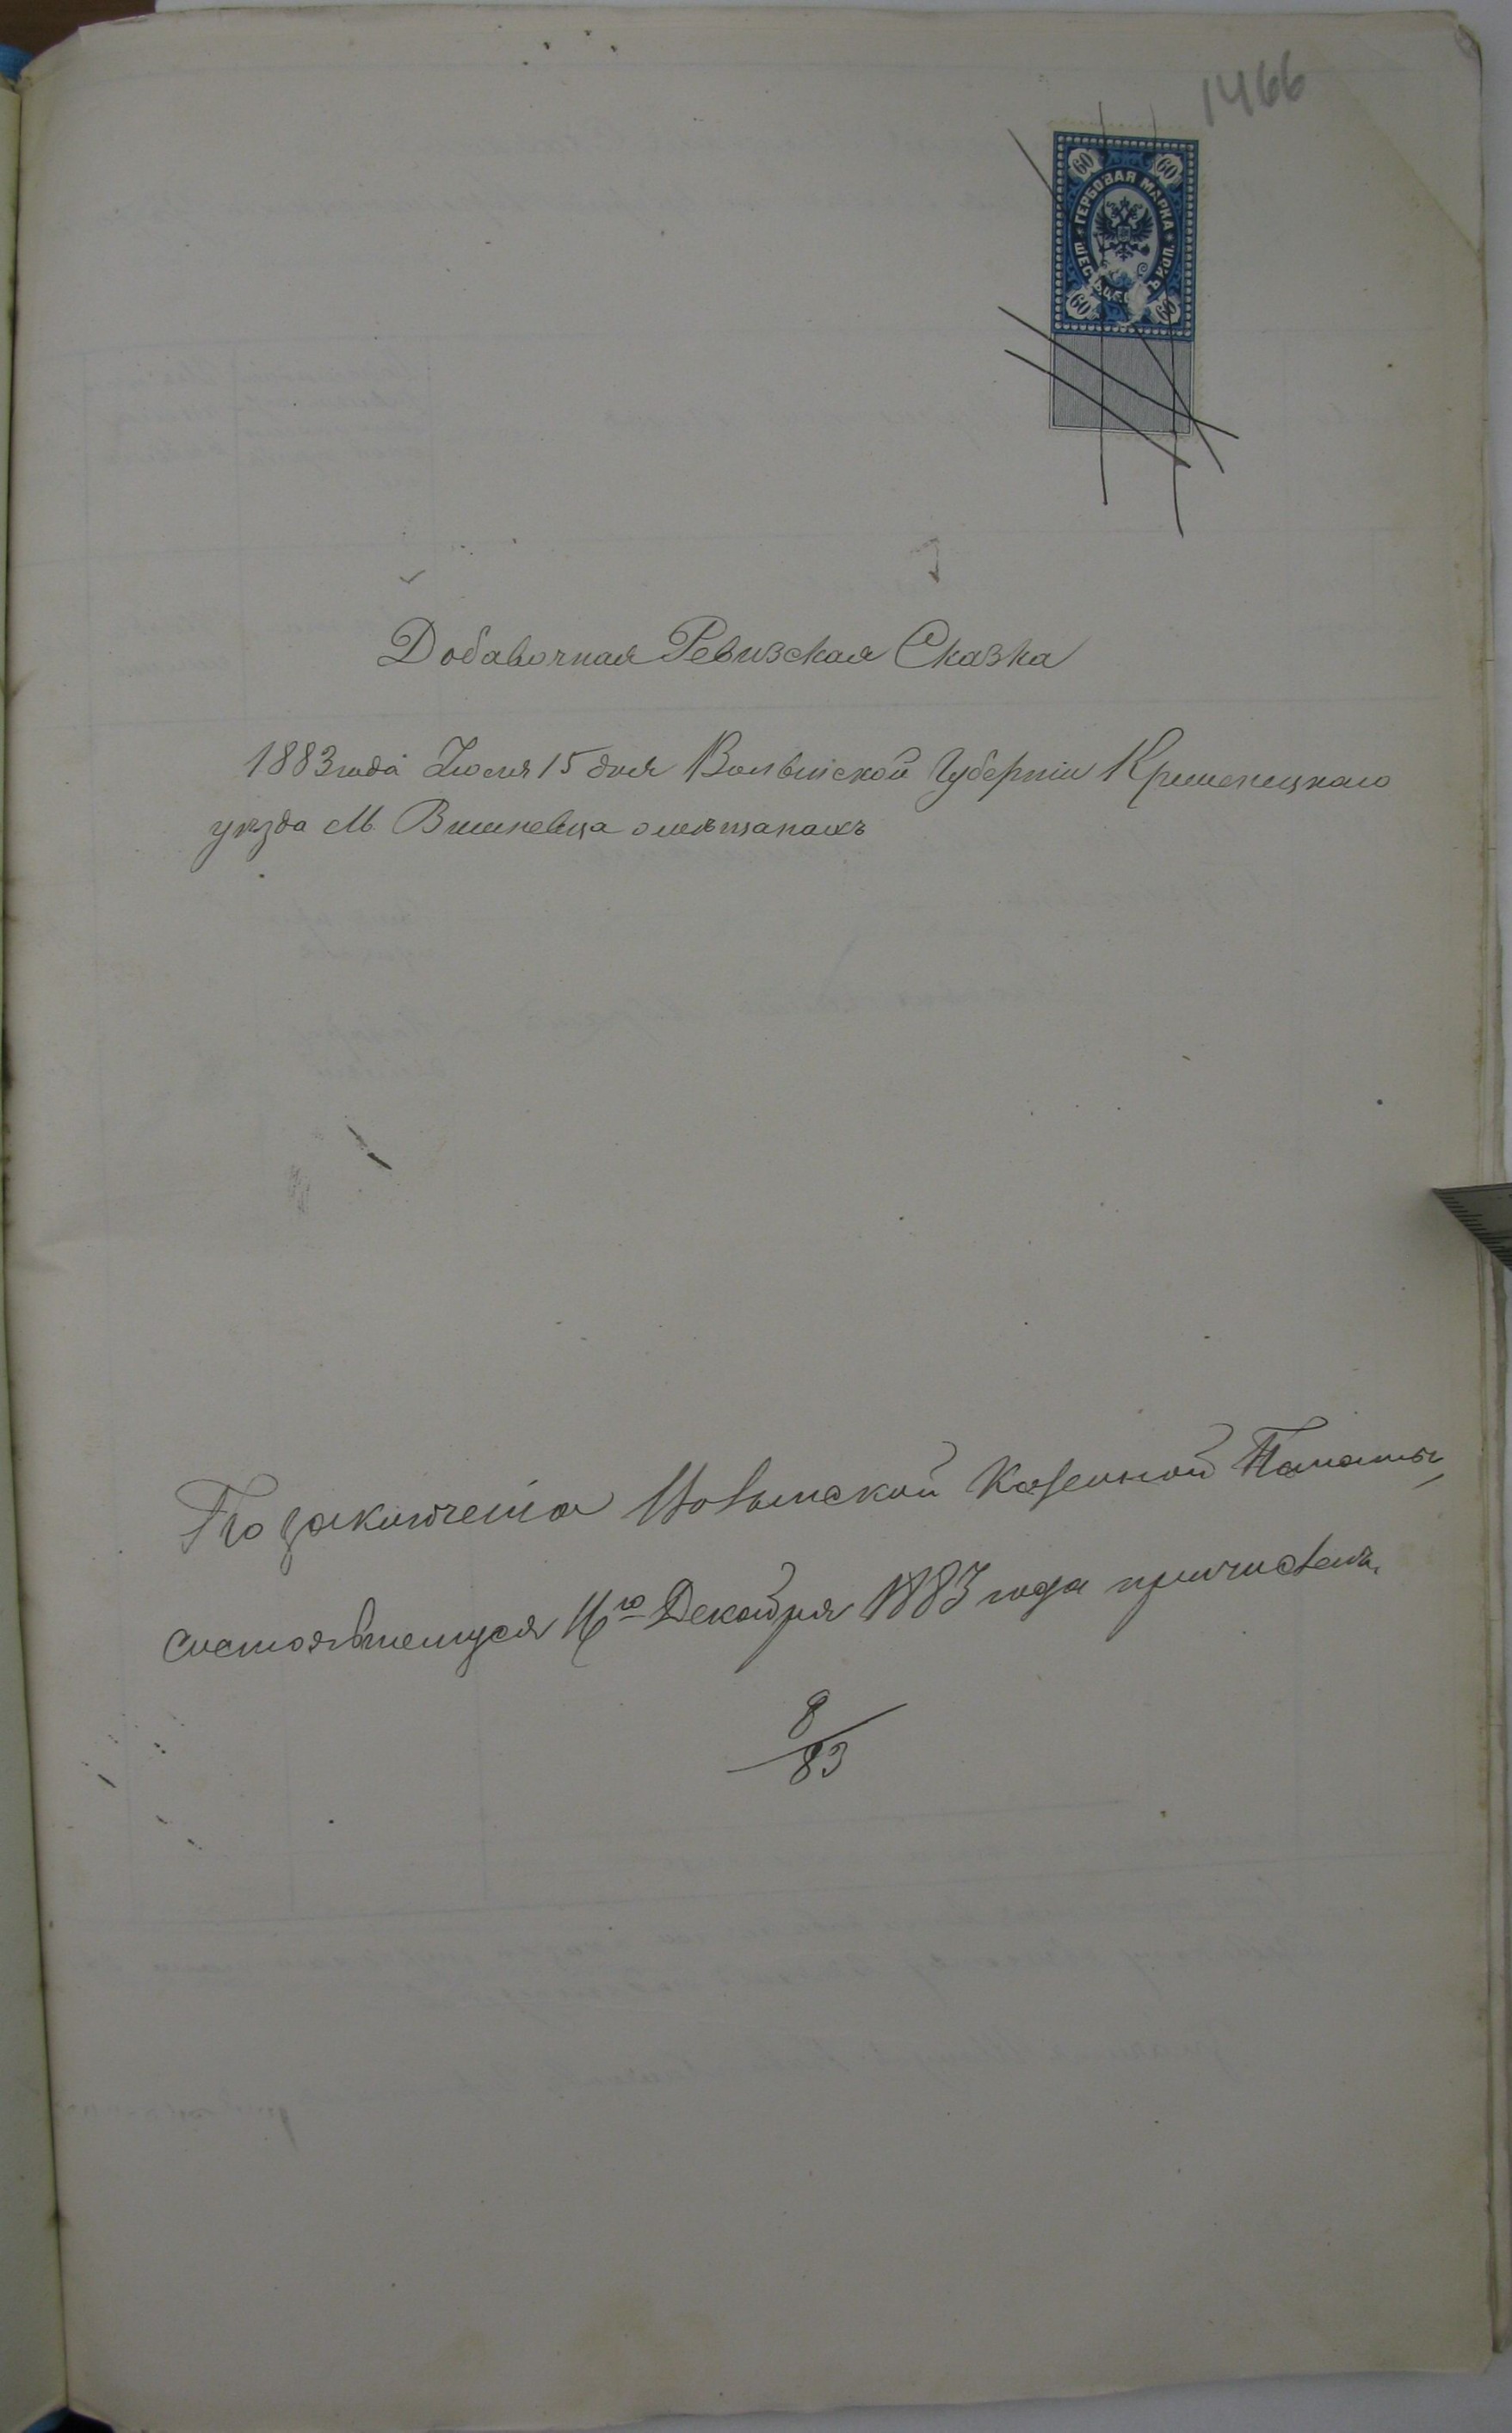 1466
60 60
ГЕРБОВАЯ МАРКА
60 60
Добавочная Ревизская Сказка
1883 года Июля 15 дня Волынской Губерніи Кременецкаго
уѣзда М. Вишневца о мѣщанахъ
По заключенію Волынской Казенной Палаты,
состоявшемуся 16го Декабря 1883 года причислены
8/83